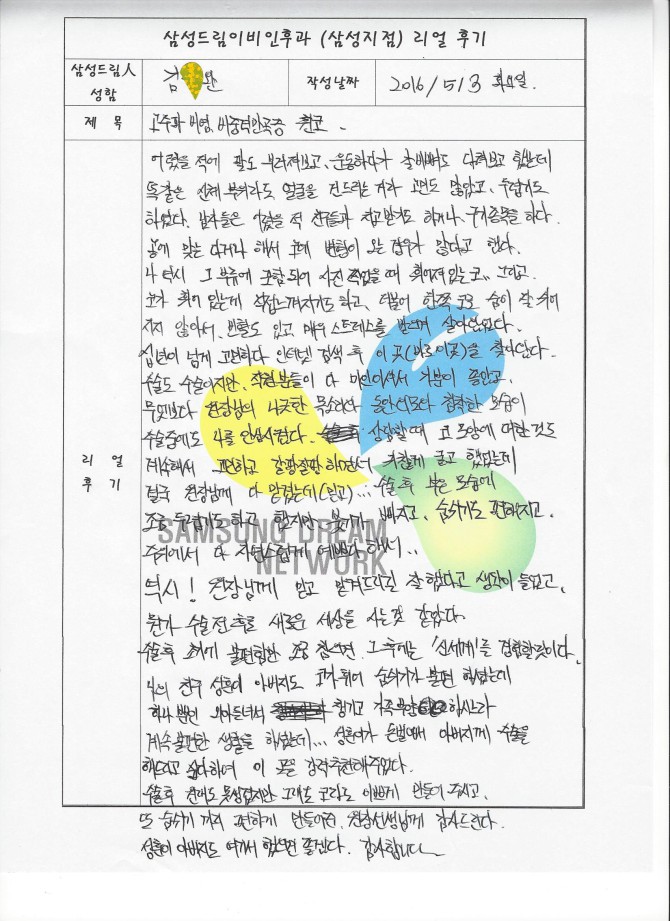 삼성드림이비인후과 (삼성지점) 리얼 후기
삼성드림人 성함
김 완
작성날짜
2016/5/3 화요일.
제 목
고주파 비염, 비중격만곡증 코.
어렸을 적에 팔도 부러져보고, 운동하다가 갈비뼈도 다쳐보고 했는데
똑같은 신체 부위라도 얼굴을 건드리는 거라 고민도 많았고, 두렵기도
하였다. 남자들은 어렸을 적 친구들과 치고받기도 하거나, 구기종목을 하다.
공에 맞는 다거나 해서 코에 변형이 오는 경우가 많다고 한다.
나 역시 그 부류에 포함 되어 사진 찍었을 때 휘어져있는 코.. 그리고.
코가 휘어 있는게 직접느껴지기도 하고, 더불어 한쪽 코로 숨이 잘 쉬어
지지 않아서, 변형도 있고 매우 스트레스를 받으며 살아왔었다.
십년이 넘게 고민하다 인터넷 검색 후 이 곳(바로이곳)을 찾아갔다.
수술도 수술이지만, 직원분들이 다 미인이셔서 기분이 좋았고,
무엇보다 원장님의 나긋한 목소리와 동안외모와 침착한 모습이
수술중에도 나를 안심시켰다. 상담할때 코 모양에 대한것도
계속해서 고민하고 갈팡질팡 하면서 귀찮게 굴고 했었는데
결국 원장님께 다 맡겼는데(믿고)... 수술 후 부은 모습에
조금 두렵기도 하고 했지만, 붓기가 빠지고, 숨쉬기도 편해지고.
주위에서 다 자연스럽게 예쁘다 해서..
역시! 원장님께 믿고 맡겨드리길 잘 했다고 생각이 들었고,
뭔가 수술 전.후로 새로운 세상을 사는것 같았다.
수술후 초기에 불편함만 조금 참으면, 그 후에는 '신세계'를 경험할것이다.
나의 친구 성훈이 아버지도 코가 휘어 숨쉬기가 불편 하셨는데
하나 뿐인 외아들녀석 챙기고 가족부양 하시느라
계속 불편한 생활을 하셨는데... 성훈이가 돈벌어서 아버지께 수술을
해드리고 싶다하여 이 곳을 강력추천해주었다.
수술후 원래도 못생겼지만 그래도 코라도 이쁘게 만들어 주시고,
또 숨쉬기 까지 편하게 만들어준, 원장선생님께 감사드린다.
성훈이 아버지도 여기서 했으면 좋겠다. 감사합니다
리 얼
후 기
SAMSUNG DREAM
NETWORK